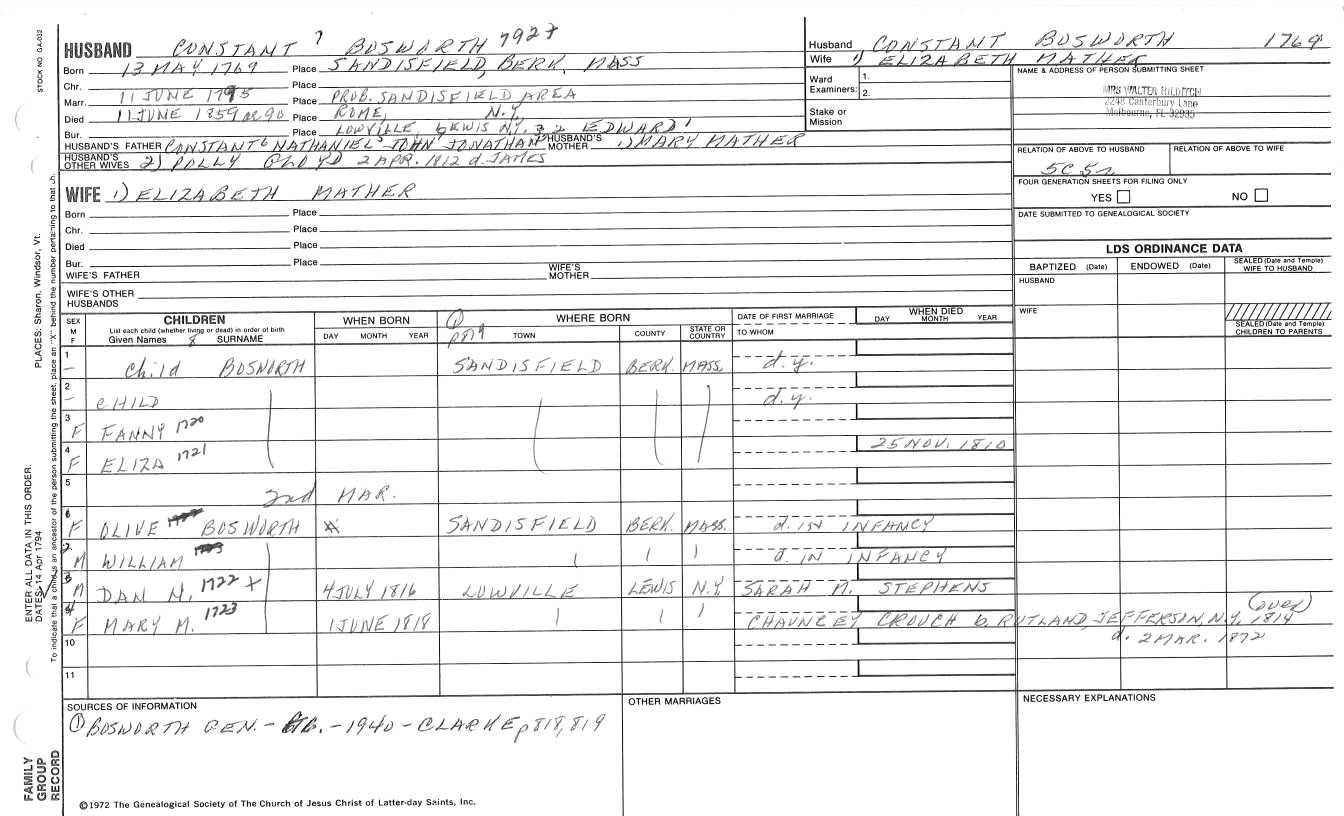 STOCK NO GA-032
HUSBAND CONSTANT 7 BOSWORTH 792+
Born 13 MAY 1769 Place SANDISFIELD, BERK, MASS
Chr. Place
Marr. 11 JUNE 1795 Place PROB. SANDISFIELD AREA
Died 11 JUNE 1859 or 90 Place ROME, N.Y.
Bur. Place LOWVILLE, LEWIS N.Y. EDWARD 1
HUSBAND'S FATHER CONSTANT 6 NATHANIEL JOHN JONATHAN 3 2 HUSBAND'S MOTHER 1) MARY MATHER
HUSBAND'S OTHER WIVES 2) POLLY 2 APR. 1812 d. JAMES
Husband CONSTANT BOSWORTH 1769
Wife 1) ELIZABETH MATHER
Ward Examiners: 1.
2.
Stake or Mission
NAME & ADDRESS OF PERSON SUBMITTING SHEET
MRS WALTER HILDITCH
2248 Canterbury Lane
Melbourne, FL 32935
RELATION OF ABOVE TO HUSBAND RELATION OF ABOVE TO WIFE
5C 5r
FOUR GENERATION SHEETS FOR FILING ONLY
YES NO
DATE SUBMITTED TO GENEALOGICAL SOCIETY
WIFE 1) ELIZABETH MATHER
Born Place
Chr. Place
Died Place
Bur. Place
WIFE'S FATHER WIFE'S MOTHER
WIFE'S OTHER HUSBANDS
LDS ORDINANCE DATA
BAPTIZED (Date) ENDOWED (Date) SEALED (Date and Temple) WIFE TO HUSBAND
HUSBAND
WIFE
SEALED (Date and Temple) CHILDREN TO PARENTS
SEX M F
CHILDREN
List each child (whether living or dead) in order of birth
Given Names 8 SURNAME
WHEN BORN
DAY MONTH YEAR
① p819
WHERE BORN
TOWN COUNTY STATE OR COUNTRY
DATE OF FIRST MARRIAGE
TO WHOM
WHEN DIED
DAY MONTH YEAR
1 – Child BOSWORTH SANDISFIELD BERK. MASS. d.y.
2 – CHILD d.y.
3 F FANNY 1720
4 F ELIZA 1721 25 NOV. 1810
5 2nd MAR.
6 F OLIVE BOSWORTH SANDISFIELD BERK. MASS. d. IN INFANCY
2. M WILLIAM d. IN INFANCY
3 M DAN N. 1722 + 4 JULY 1816 LOWVILLE LEWIS N.Y. SARAH M. STEPHENS
4 F MARY M. 1723 1 JUNE 1818 CHAUNCEY CROUCH b. RUTLAND, JEFFERSON, N.Y. 1814 (over)
10 d. 2 MAR. 1872
11
SOURCES OF INFORMATION
① BOSWORTH GEN. - - 1940 - CLARKE p 818, 819
OTHER MARRIAGES
NECESSARY EXPLANATIONS
©1972 The Genealogical Society of The Church of Jesus Christ of Latter-day Saints, Inc.
FAMILY GROUP RECORD
ENTER ALL DATA IN THIS ORDER:
DATES: 14 Apr 1794 PLACES: Sharon, Windsor, Vt.
To indicate that a child is an ancestor of the person submitting the sheet, place an "X" behind the number pertaining to that ch.